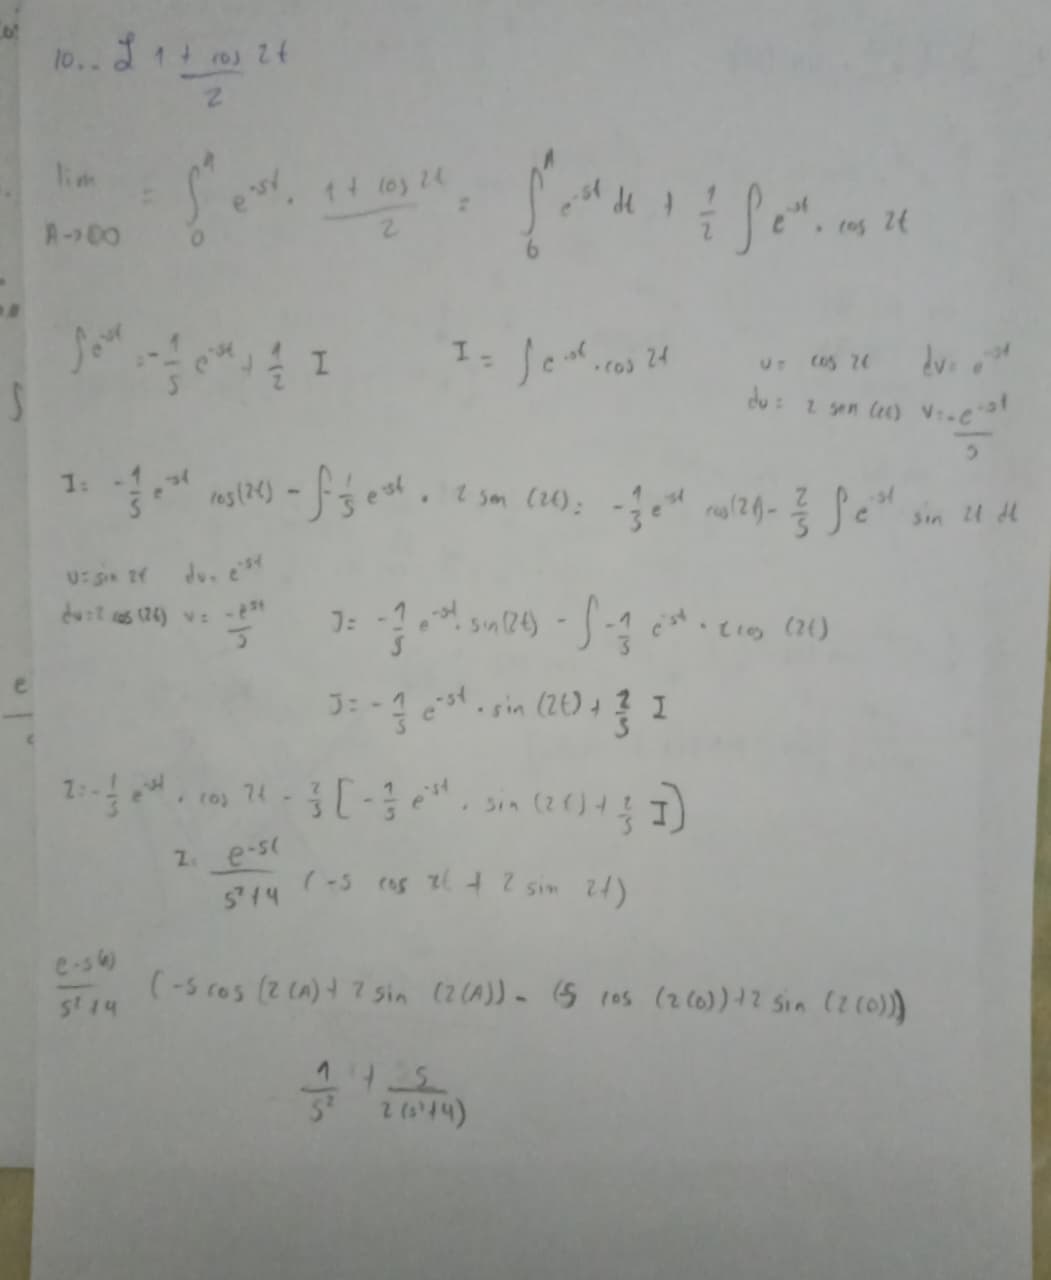 10.. ℒ 1 + cos 2t / 2
lim A→∞ = ∫₀^A e^-st . 1 + cos 2t / 2 = ∫₀^A e^-st dt + 1/2 ∫ e^-st . cos 2t
∫e^-st = -1/s e^-st + 1/2 I I = ∫ e^-st . cos 2t u= cos 2t dv= e^-st
du= 2 sen (2t) v= -e^-st / s
I= -1/s e^-st cos(2t) - ∫-1/s e^-st . 2 sen (2t) = -1/s e^-st cos(2t) - 2/s ∫ e^-st sin 2t dt
u= sin 2t dv= e^-st
du= 2 cos(2t) v= -e^st / s J= -1/s e^-st . sin(2t) - ∫ -1/s e^-st . 2 cos (2t)
J= -1/s e^-st . sin (2t) + 2/s I
I= -1/s e^-st . cos 2t - 2/s [-1/s e^-st . sin (2t) + 2/s I]
I= e^-st / s²+4 (-s cos 2t + 2 sin 2t)
e^-s(A) / s²+4 (-s cos (2(A) + 2 sin (2(A)) - (s cos (2(0)) + 2 sin (2(0)))
1/s² + s / 2(s²+4)